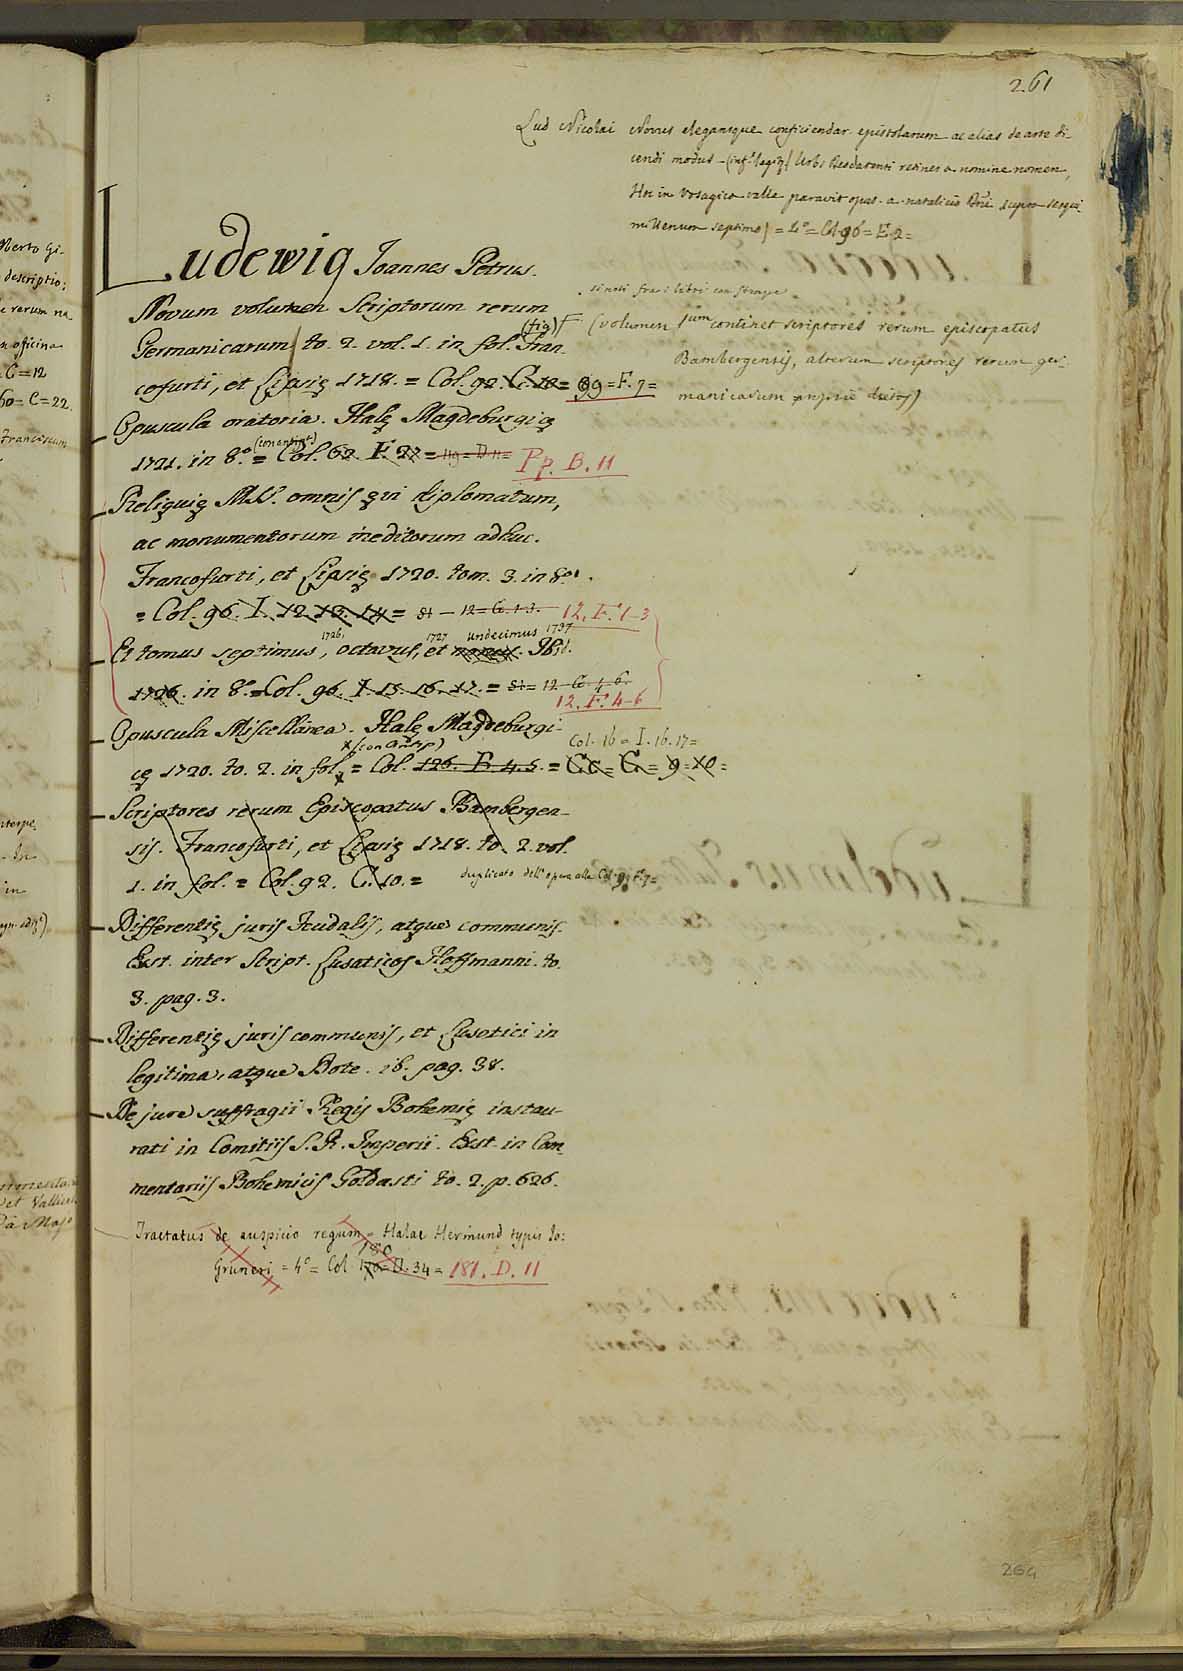 261
Lud Nicolai Novus elegansque conficiendar. epistolarum ac alias de arte di-
cendi modus - Urbs Deodatensi retinens a nomine nomen,
Hoc in Vosagica valle paravit opus. a natalicio Dni supra sesqui
millenum septimo) = 4.º = Col. 96 = E. 2 =
Ludewig Joannes Petrus.
Novum volumen Scriptorum rerum
(fig)
Germanicarum to. 2. vol. 1. in fol. Fran-
cofurti, et Lipsię 1718. = Col. 92. C. 10 = 99 = F. 7 =
(volumen Ium continet scriptores rerum episcopatus
Bambergensis, alterum scriptores rerum ger-
manicarum proprie dictos)
Opuscula oratoria. Halę Magdeburgicę
(con antip.)
1721. in 8.º = Col. 62. F. 27 = 119 = D. 11 = Pp. B. 11
Reliquię MSS. omnis ęvi diplomatum,
ac monumentorum ineditorum adhuc.
Francofurti, et Lipsię 1720. tom. 3. in 8.º.
= Col. 96. I. 12. 13. 14 = 81 - 12 = G. 1-3. 12. F. 1-3
1726. 1727 undecimus 1737
Et tomus septimus, octavus, et nonus. Ibid.
1726. in 8.º = Col. 96. I. 15. 16. 17. = 81 = 12 G. 4-6.
12. F. 4-6
Opuscula Miscellanea. Halę Magdeburgi-
(con antip) Col. 16 = I. 16. 17 =
cę 1720. to. 2. in fol. = Col. 126. B. 4. 5. = CC = G = 9 = 10 =
Scriptores rerum Episcopatus Bambergen-
sis. Francofurti, et Lipsię 1718. to. 2. vol.
1. in fol. = Col. 92. C. 10. = duplicato dell'opera alla Col. 99 F. 7 =
Differentię juris Feudalis, atque communis.
Exst. inter Script. Lusaticos Hoffmanni. to.
3. pag. 3.
Differentię juris communis, et Lusatici in
legitima, atque Dote. ib. pag. 38.
De jure suffragii Regis Bohemię instau-
rati in Comitiis S. R. Imperii. Exst. in Com-
mentariis Bohemicis Goldasti to. 2. p. 626.
Tractatus de auspicio regum - Halae Hermund typis Io:
180
Gruneri = 4º = Col 176 = D. 34 = 181. D. 11
264